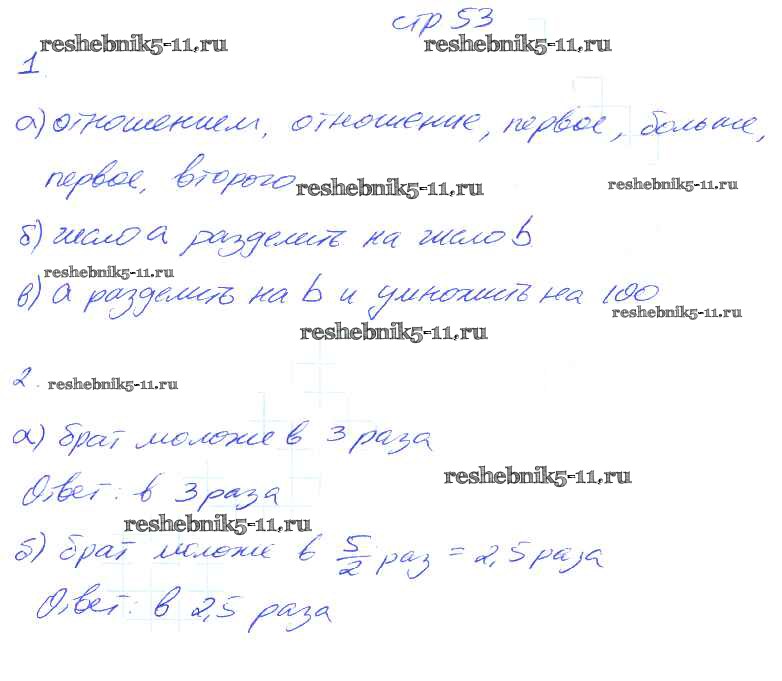 стр 53
reshebnik5-11.ru reshebnik5-11.ru
1.
а) отношением, отношение, первое, больше,
первое, второго
reshebnik5-11.ru reshebnik5-11.ru
б) число a разделить на число b
reshebnik5-11.ru
в) a разделить на b и умножить на 100
reshebnik5-11.ru
reshebnik5-11.ru
2. reshebnik5-11.ru
а) брат моложе в 3 раза
reshebnik5-11.ru
Ответ: в 3 раза
reshebnik5-11.ru
б) брат моложе в 5/2 раз = 2,5 раза
Ответ: в 2,5 раза